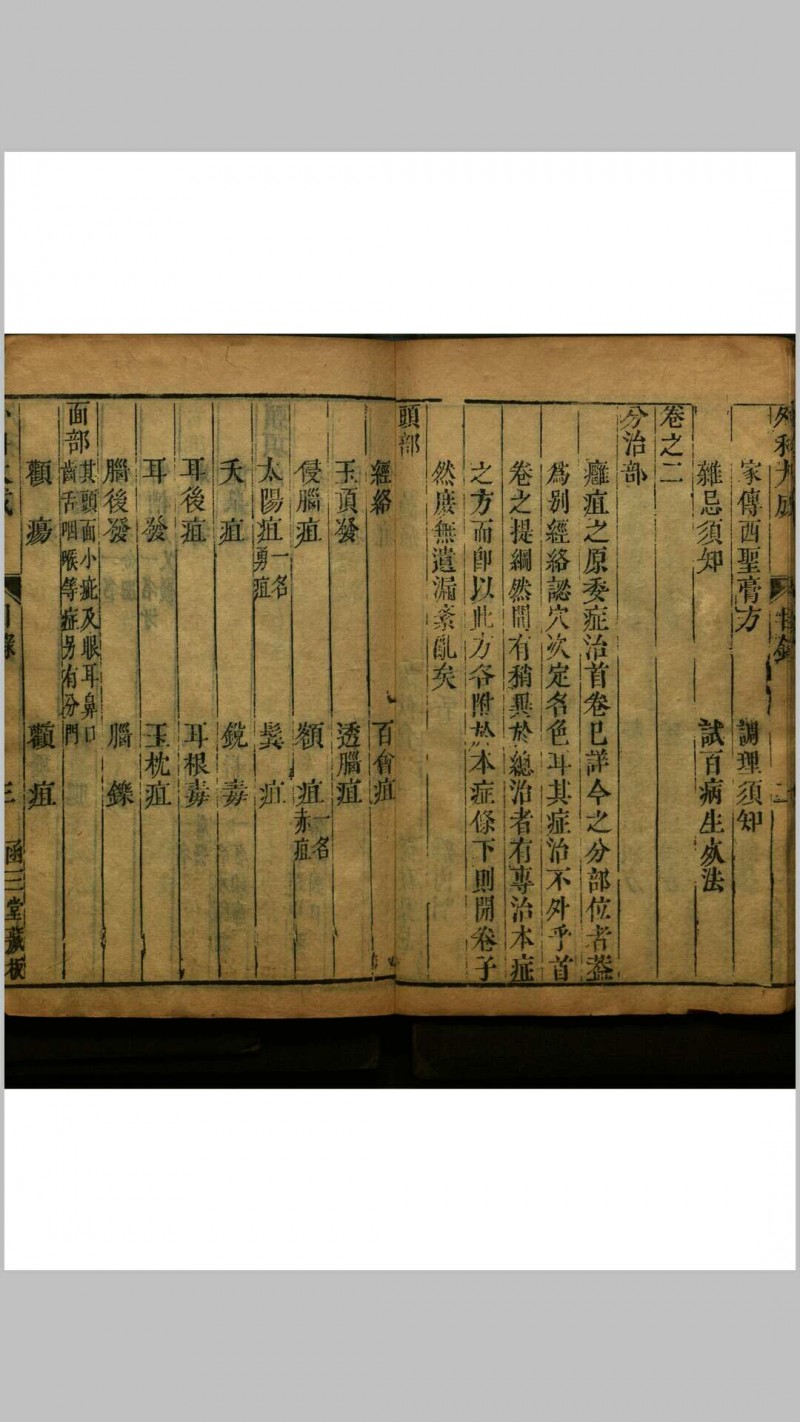 外科大成 目錄 二
家傳西聖膏方 調理須知
雜忌須知 試百病生死法
卷之二
分治部
癰疽之原委症治首卷已詳今之分部位者葢
爲别經絡認穴次定名色耳其症治不外乎首
卷之提綱然間有稍異於總治者有專治本症
之方而卽以此方各附於本症條下則開卷了
然庶無遺漏紊亂矣
頭部
經絡 百會疽
玉頂發 透腦疽
侵腦疽 額疽一名赤疽
太陽疽一名勇疽 鬂疽
夭疽 銳毒
耳後疽 耳根毒
耳發 玉枕疽
腦後發 腦鑠
面部 其頭面小疵及眼耳鼻口齒舌咽喉等症另有分門
顴瘍 顴疽
大成 目錄 三 函三堂藏板